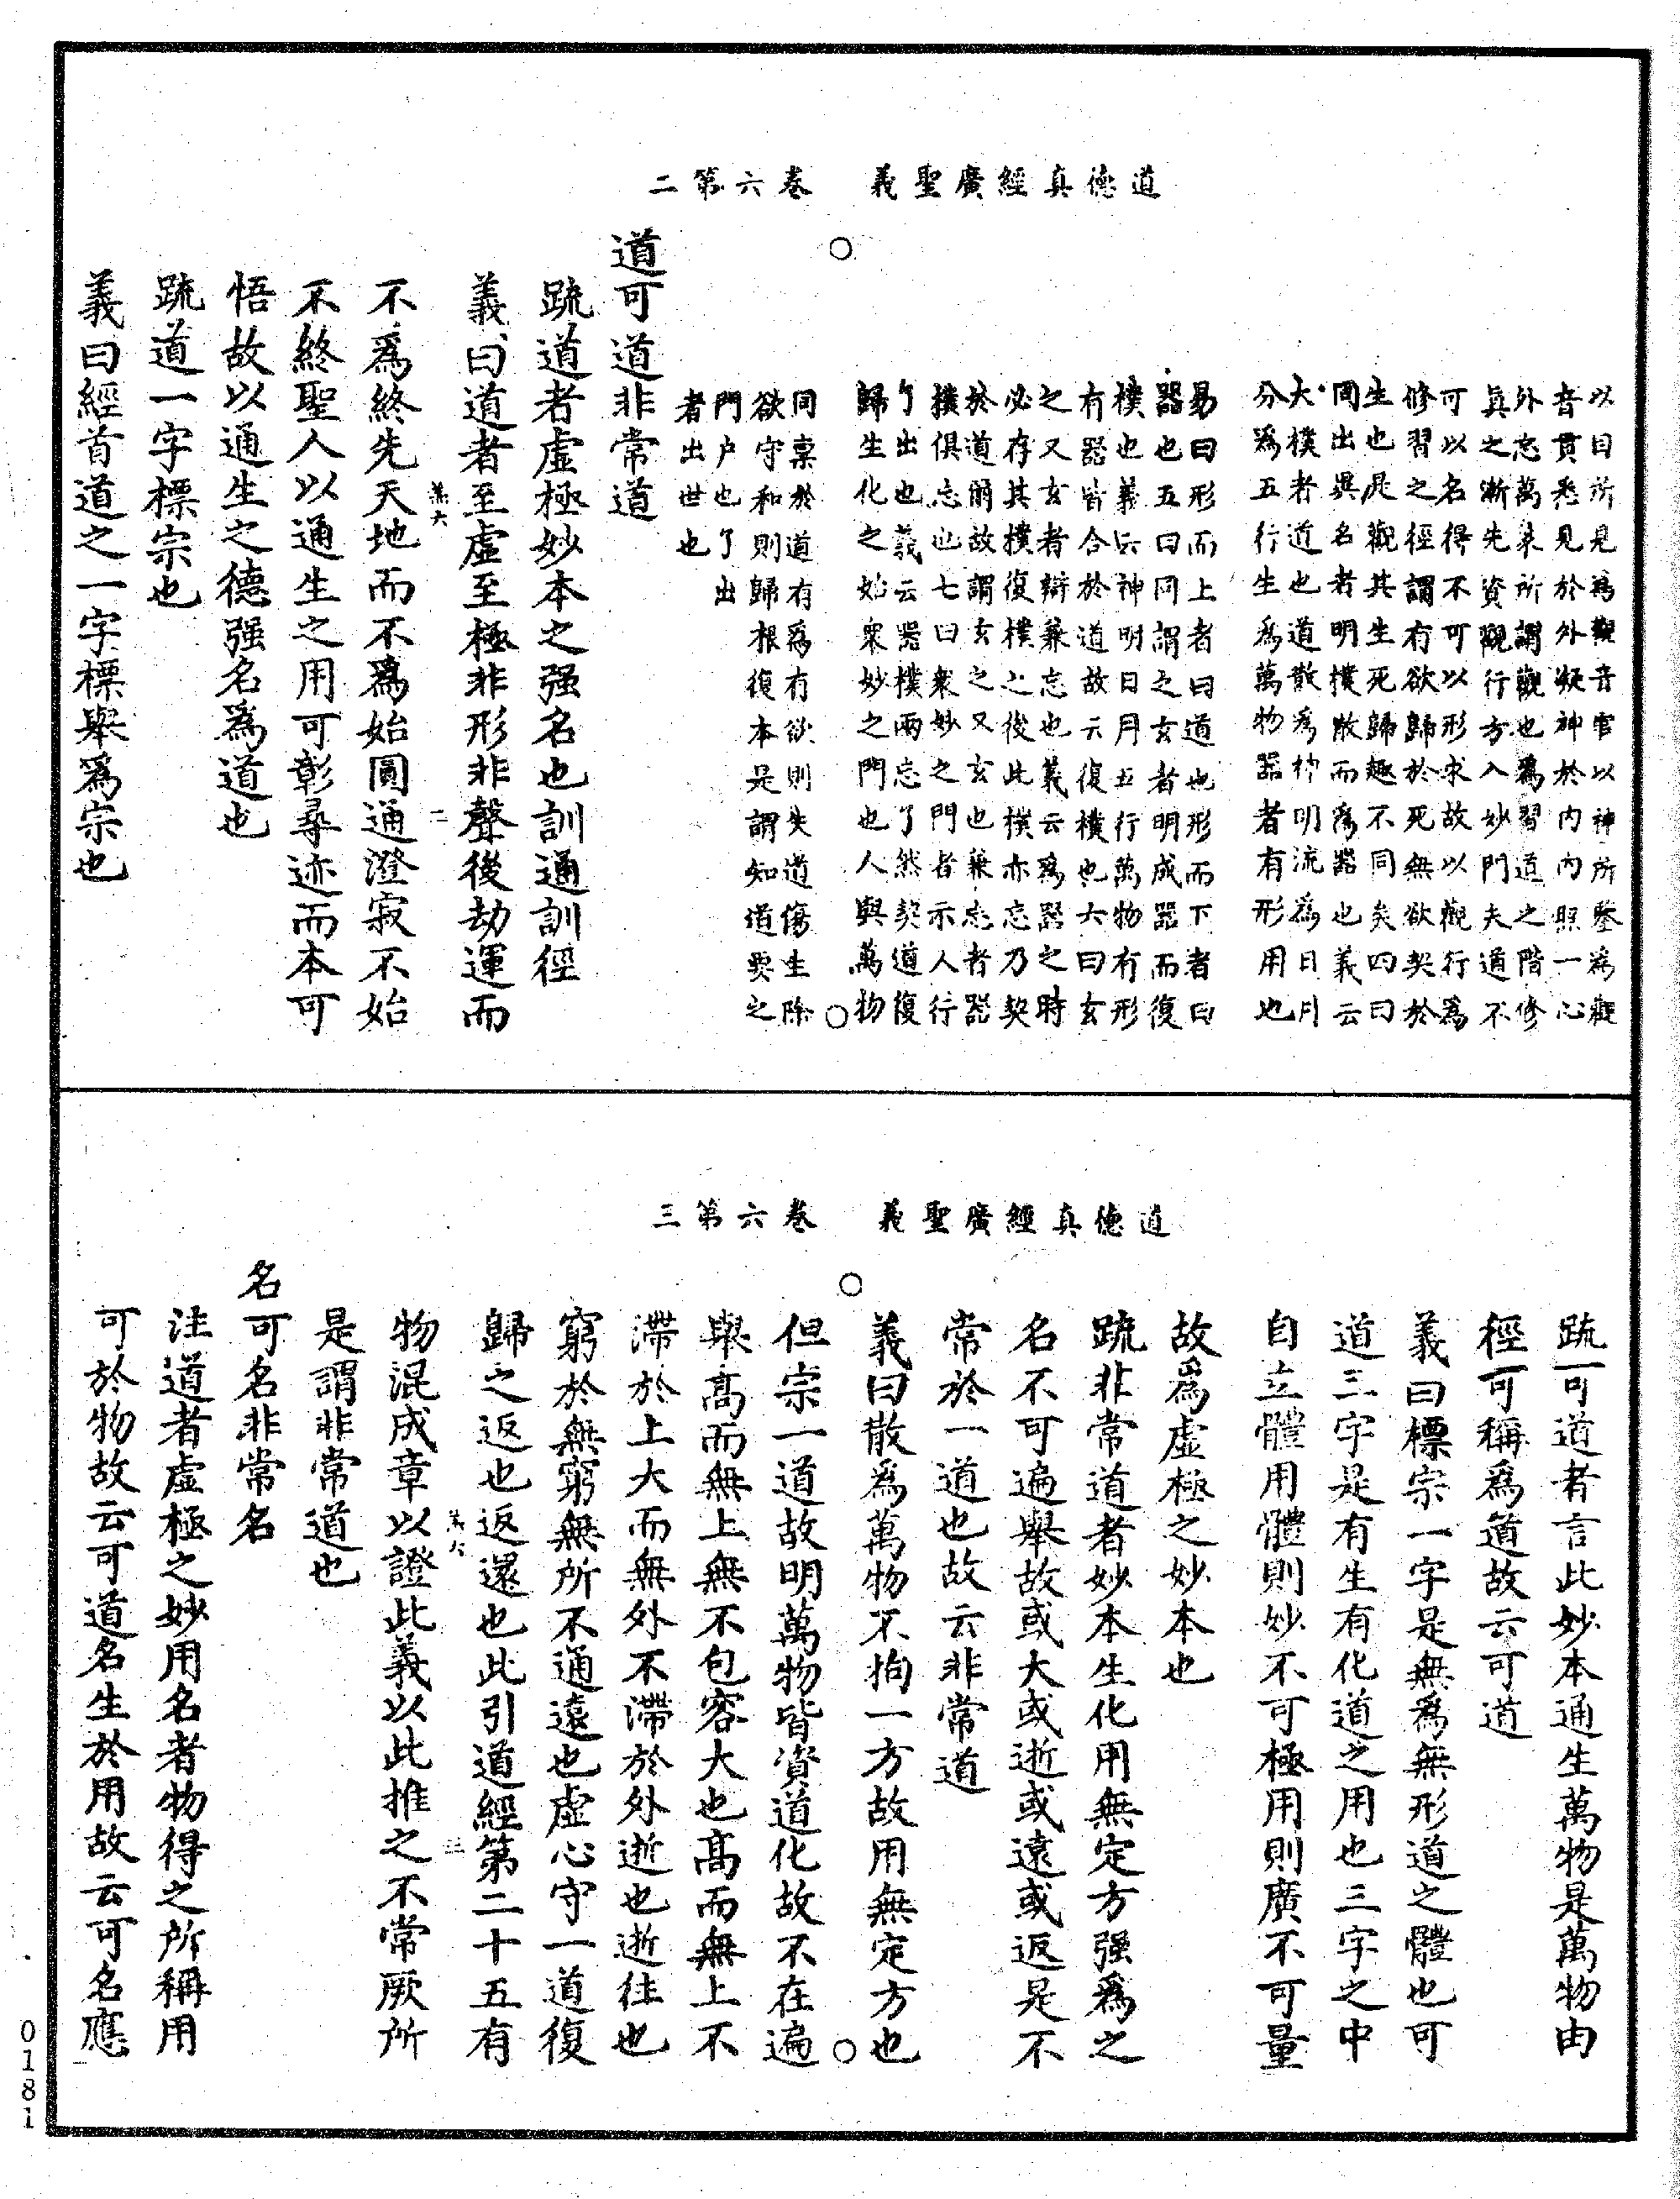 道德真經廣聖義　卷六第二
以目所見為觀音官以神所鑒為觀
音貫悉見於外凝神於內內照一心
外忘萬象所謂觀也為習道之階修
真之漸先資觀行方入妙門夫道不
可以名得不可以形求故以觀行為
修習之徑謂有欲歸於死無欲契於
生也是觀其生死歸趣不同矣四曰
同出異名者明樸散而為器也義云
大樸者道也道散為神明流為日月
分為五行生為萬物器者有形用也
易曰形而上者曰道也形而下者曰
器也五曰同謂之玄者明成器而復
樸也義云神明日月五行萬物有形
有器皆合於道故云復樸也六曰玄
之又玄者辯兼忘也義云為器之時
必存其樸復樸之後此樸亦忘乃契
於道爾故謂玄之又玄也兼忘者器
樸俱忘也七曰衆妙之門者示人行
了出也義云器樸兩忘了然契道復
歸生化之始衆妙之門也人與萬物
同稟於道有為有欲則失道傷生除
欲守和則歸根復本是謂知道要之
門户也了出
者出世也
道可道非常道
疏道者虛極妙本之强名也訓通訓徑
義曰道者至虛至極非形非聲後劫運而
不爲終先天地而不爲始圓通澄寂不始
不終聖人以通生之用可彰尋迹而本可
悟故以通生之德强名爲道也
疏道一字標宗也
義曰經首道之一字標舉爲宗也
道德真經廣聖義　卷六第三
疏可道者言此妙本通生萬物是萬物由
徑可稱爲道故云可道
義曰標宗一字是無爲無形道之體也可
道三字是有生有化道之用也三字之中
自立體用體則妙不可極用則廣不可量
故爲虛極之妙本也
疏非常道者妙本生化用無定方强爲之
名不可遍舉故或大或逝或遠或返是不
常於一道也故云非常道
義曰散爲萬物不拘一方故用無定方也
但宗一道故明萬物皆資道化故不在遍
舉高而無上無不包容大也高而無上不
滯於上大而無外不滯於外逝也逝往也
窮於無窮無所不通遠也虛心守一道復
歸之返也返還也此引道經第二十五有
物混成章以證此義以此推之不常厥所
是謂非常道也
名可名非常名
注道者虛極之妙用名者物得之所稱用
可於物故云可道名生於用故云可名應
0181